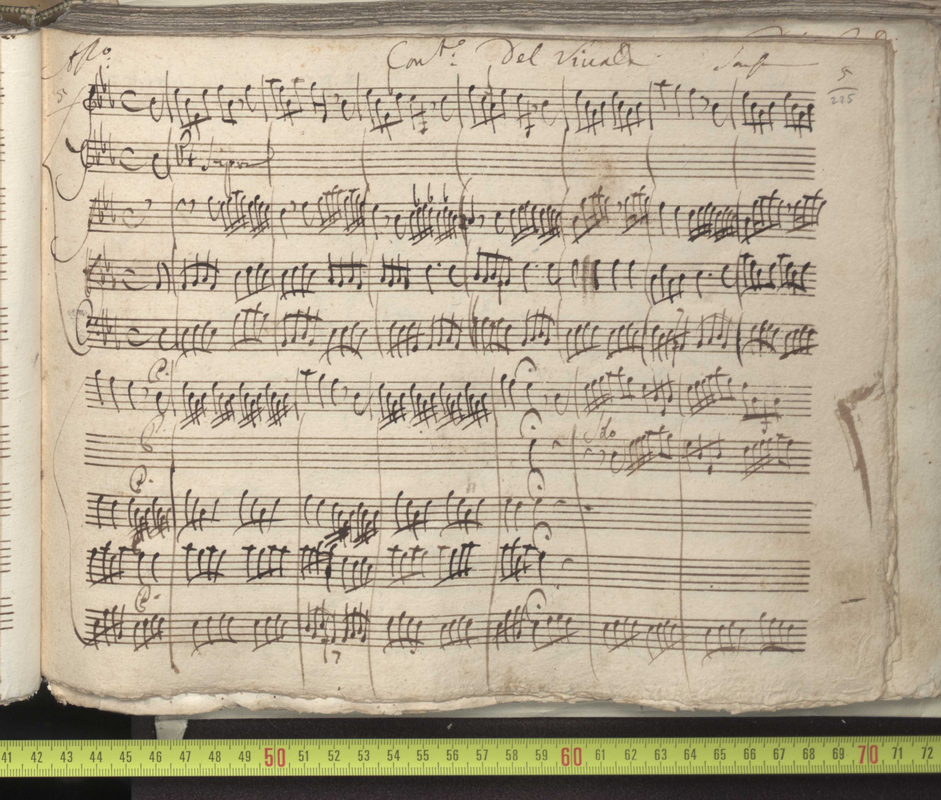 All.o Con.to Del Viuald
5
225
Ut Supra
P.
P.
Solo
P.
P.
7
41 42 43 44 45 46 47 48 49 50 51 52 53 54 55 56 57 58 59 60 61 62 63 64 65 66 67 68 69 70 71 72